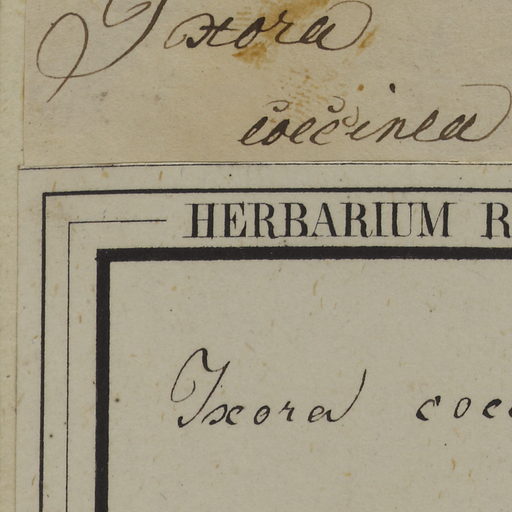 Ixora
coccinea
HERBARIUM R
Ixora cocc